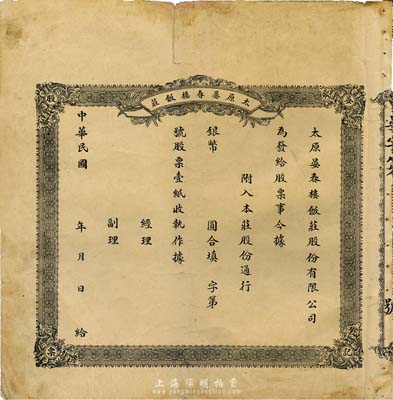 太原晏春樓飯莊
股
票
太原晏春樓飯莊股份有限公司
為發給股票事今據
附入本莊股份通行
銀幣 圓合填 字第
號股票壹紙收執作據
經理
副理
中華民國 年 月 日 給
號
上海陽明拍賣